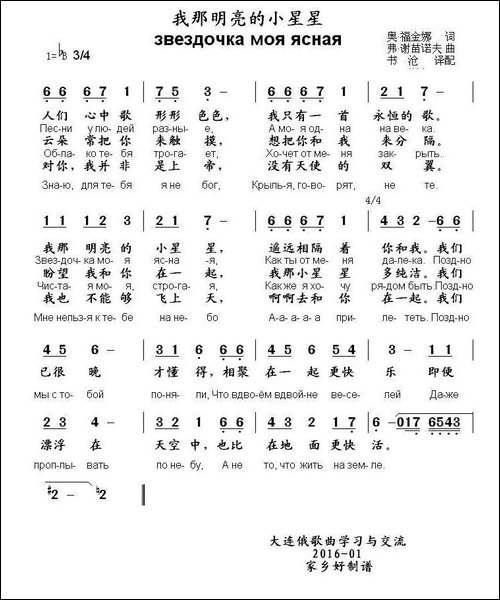 我那明亮的小星星
звездочка моя ясная
奥·福金娜 词
弗·谢苗诺夫 曲
书 沧 译配
1=♭B 3/4
6 6 6 7 | 7 5 3 - | 6 6 6 6 7 | 2 1 7 -
人们 心中 歌 形形 色色, 我只有一 首 永恒的 歌。
Пес-ни у людей раз-ны- е, А мо-я од-на на ве-ка.
云朵 常把 你 来触 摸, 想把你和 我 来分 隔。
Об-ла-ко те-бя тро-га-ет, Хо-чет от ме-ня зак-рыть.
对你, 我并 非 是上 帝, 没有天使 的 双 翼。
Зна-ю, для те-бя я не бог, Крыль-я, го-во-рят, не те.
4/4
1 1 1 2 3 | 2 1 7 - | 1 1 1 2 3 | 4 3 2 - 6 6
我那 明亮 的 小星 星, 遥远相隔 着 你和 我。我们
Звез-доч-ка мо-я яс-на -я, Как ты от ме-ня да-ле-ка. Позд-но
盼望 我和 你 在一 起, 我那小星 星 多纯洁。我们
Чис-та-я мо-я, стро-га-я, Как же я хо-чу ря-дом быть.Позд-но
我也 不能 够 飞上 天, 啊啊去和 你 在一 起。我们
Мне нель-зя к те-бе на не-бо А-а-а-а при- ле-теть. Позд-но
4 5 6 - | 3 1 6 6 6 | 4 5 6 1 6 | 3 - 1 1
已很 晚 才懂 得,相聚 在一 起 更快 乐 即便
мы с то-бой по-ня-ли, Что вдво-ём вдвой-не ве-се- лей Да-же
2 3 4 - | 3 2 1 6 6 | 4 3 2 1 7 | 6 - 017 6543
漂浮 在 天空 中,也比 在地 面 更快 活。
проп-лы- вать по не-бу, А не то, что жить на зем-ле.
#2 - ♮2
大连俄歌曲学习与交流
2016-01
家乡好制谱